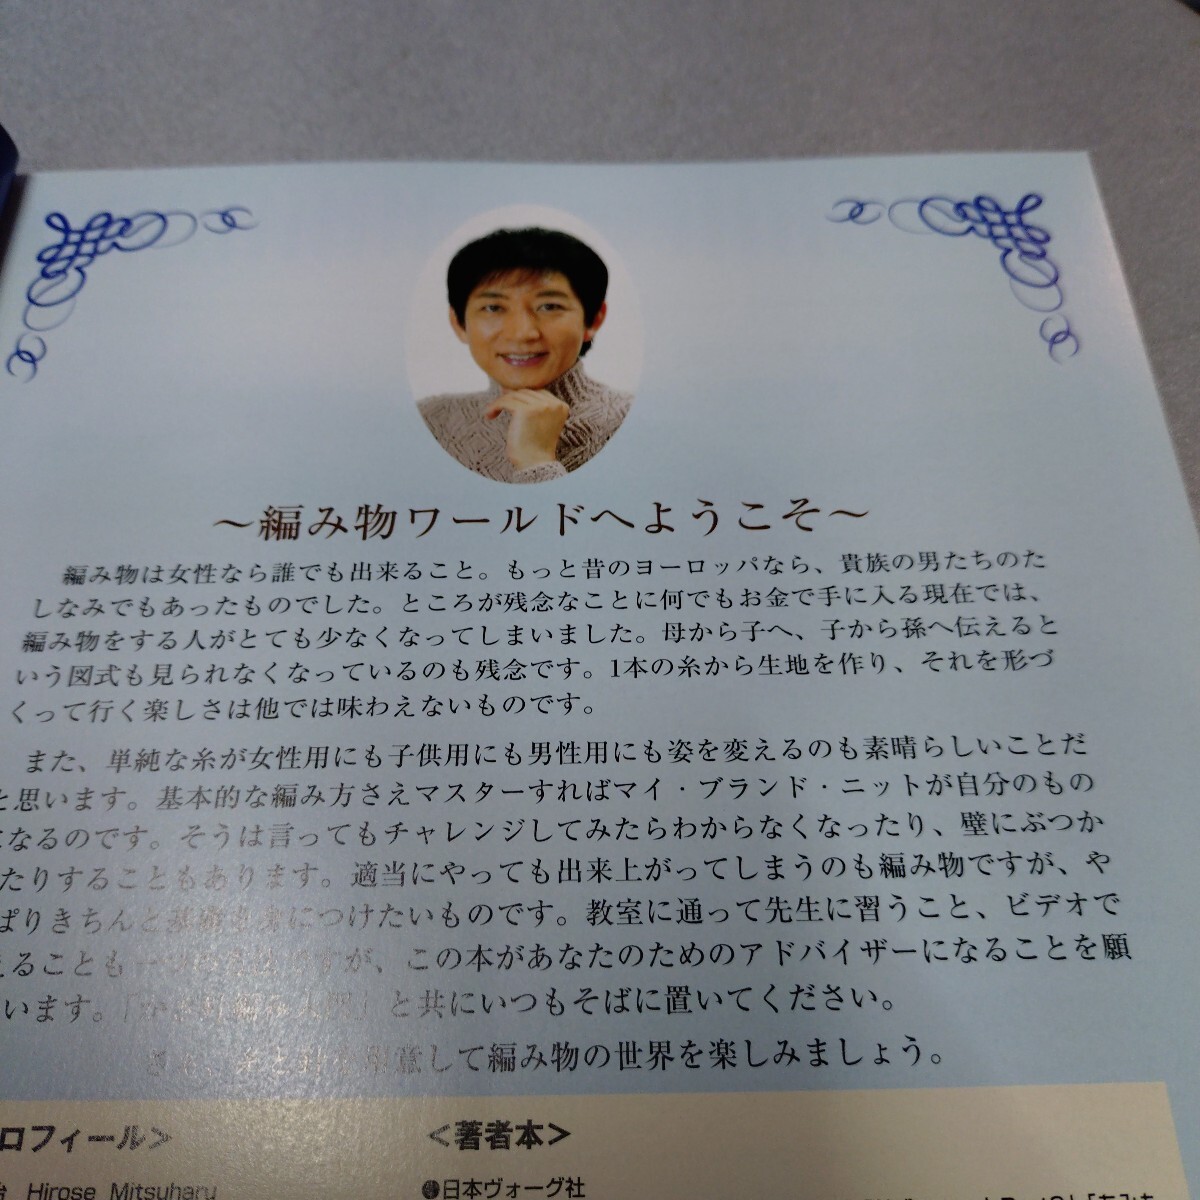 ～編み物ワールドへようこそ～
編み物は女性なら誰でも出来ること。もっと昔のヨーロッパなら、貴族の男たちのた
しなみでもあったものでした。ところが残念なことに何でもお金で手に入る現在では、
編み物をする人がとても少なくなってしまいました。母から子へ、子から孫へ伝えると
いう図式も見られなくなっているのも残念です。1本の糸から生地を作り、それを形づ
くって行く楽しさは他では味わえないものです。
また、単純な糸が女性用にも子供用にも男性用にも姿を変えるのも素晴らしいことだ
と思います。基本的な編み方さえマスターすればマイ・ブランド・ニットが自分のもの
になるのです。そうは言ってもチャレンジしてみたらわからなくなったり、壁にぶつか
たりすることもあります。適当にやっても出来上がってしまうのも編み物ですが、や
ぱりきちんと基礎を身につけたいものです。教室に通って先生に習うこと、ビデオで
えることも ですが、この本があなたのためのアドバイザーになることを願
います。 と共にいつもそばに置いてください。
さあ、糸と針を用意して編み物の世界を楽しみましょう。
ロフィール＞
＜著者本＞
治 Hirose Mitsuharu
●日本ヴォーグ社